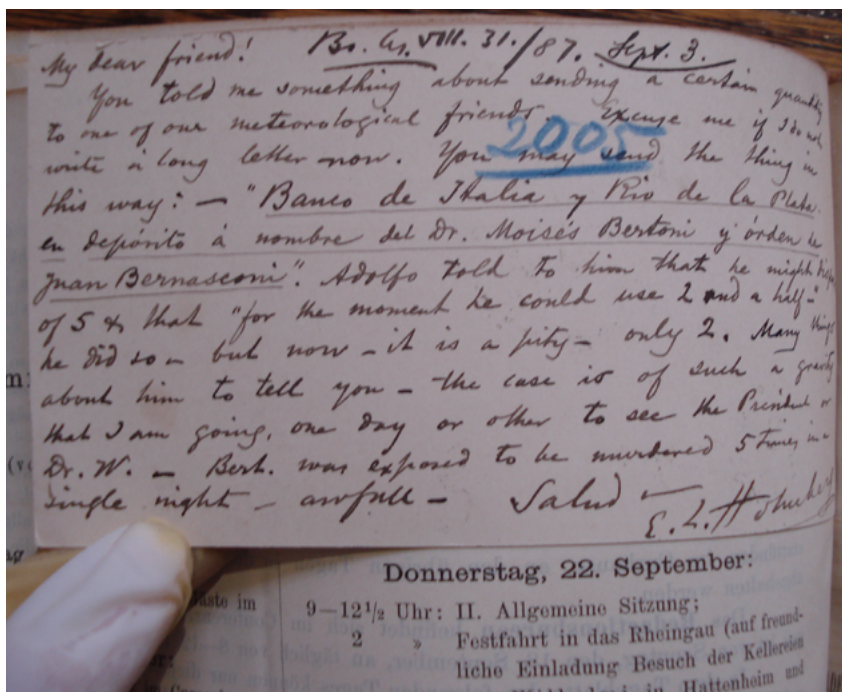 My dear friend! Bs. As. VIII. 31./87. Sept. 3.
You told me something about sending a certain quantity
to one of our meteorological friends. Excuse me if I do not
write a long letter now. You may send the thing in
2005
this way: — "Banco de Italia y Rio de la Plata.
en depósito á nombre del Dr. Moisés Bertoni y órden de
Juan Bernasconi". Adolfo told to him that he might
of 5 & that "for the moment he could use 2 and a half-"
he did so — but now — it is a pity — only 2. Many things
about him to tell you — the case is of such a gravity
that I am going, one day or other to see the President or
Dr. W. — Bert. was exposed to be murdered 5 times in a
single night — awfull — Salud —
E. L. Holmberg
Donnerstag, 22. September:
9—12½ Uhr: II. Allgemeine Sitzung;
2 » Festfahrt in das Rheingau (auf freund-
liche Einladung Besuch der Kellereien
in Hattenheim und
aste im